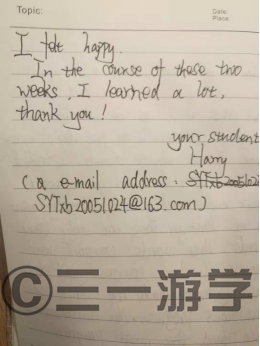 Topic:
Date:
Place:
I felt happy.
In the course of these two
weeks, I learned a lot,
thank you!
your student
Harry
(a e-mail address. SYTxb2005102
SYTxb20051024@163.com)
©三一游学